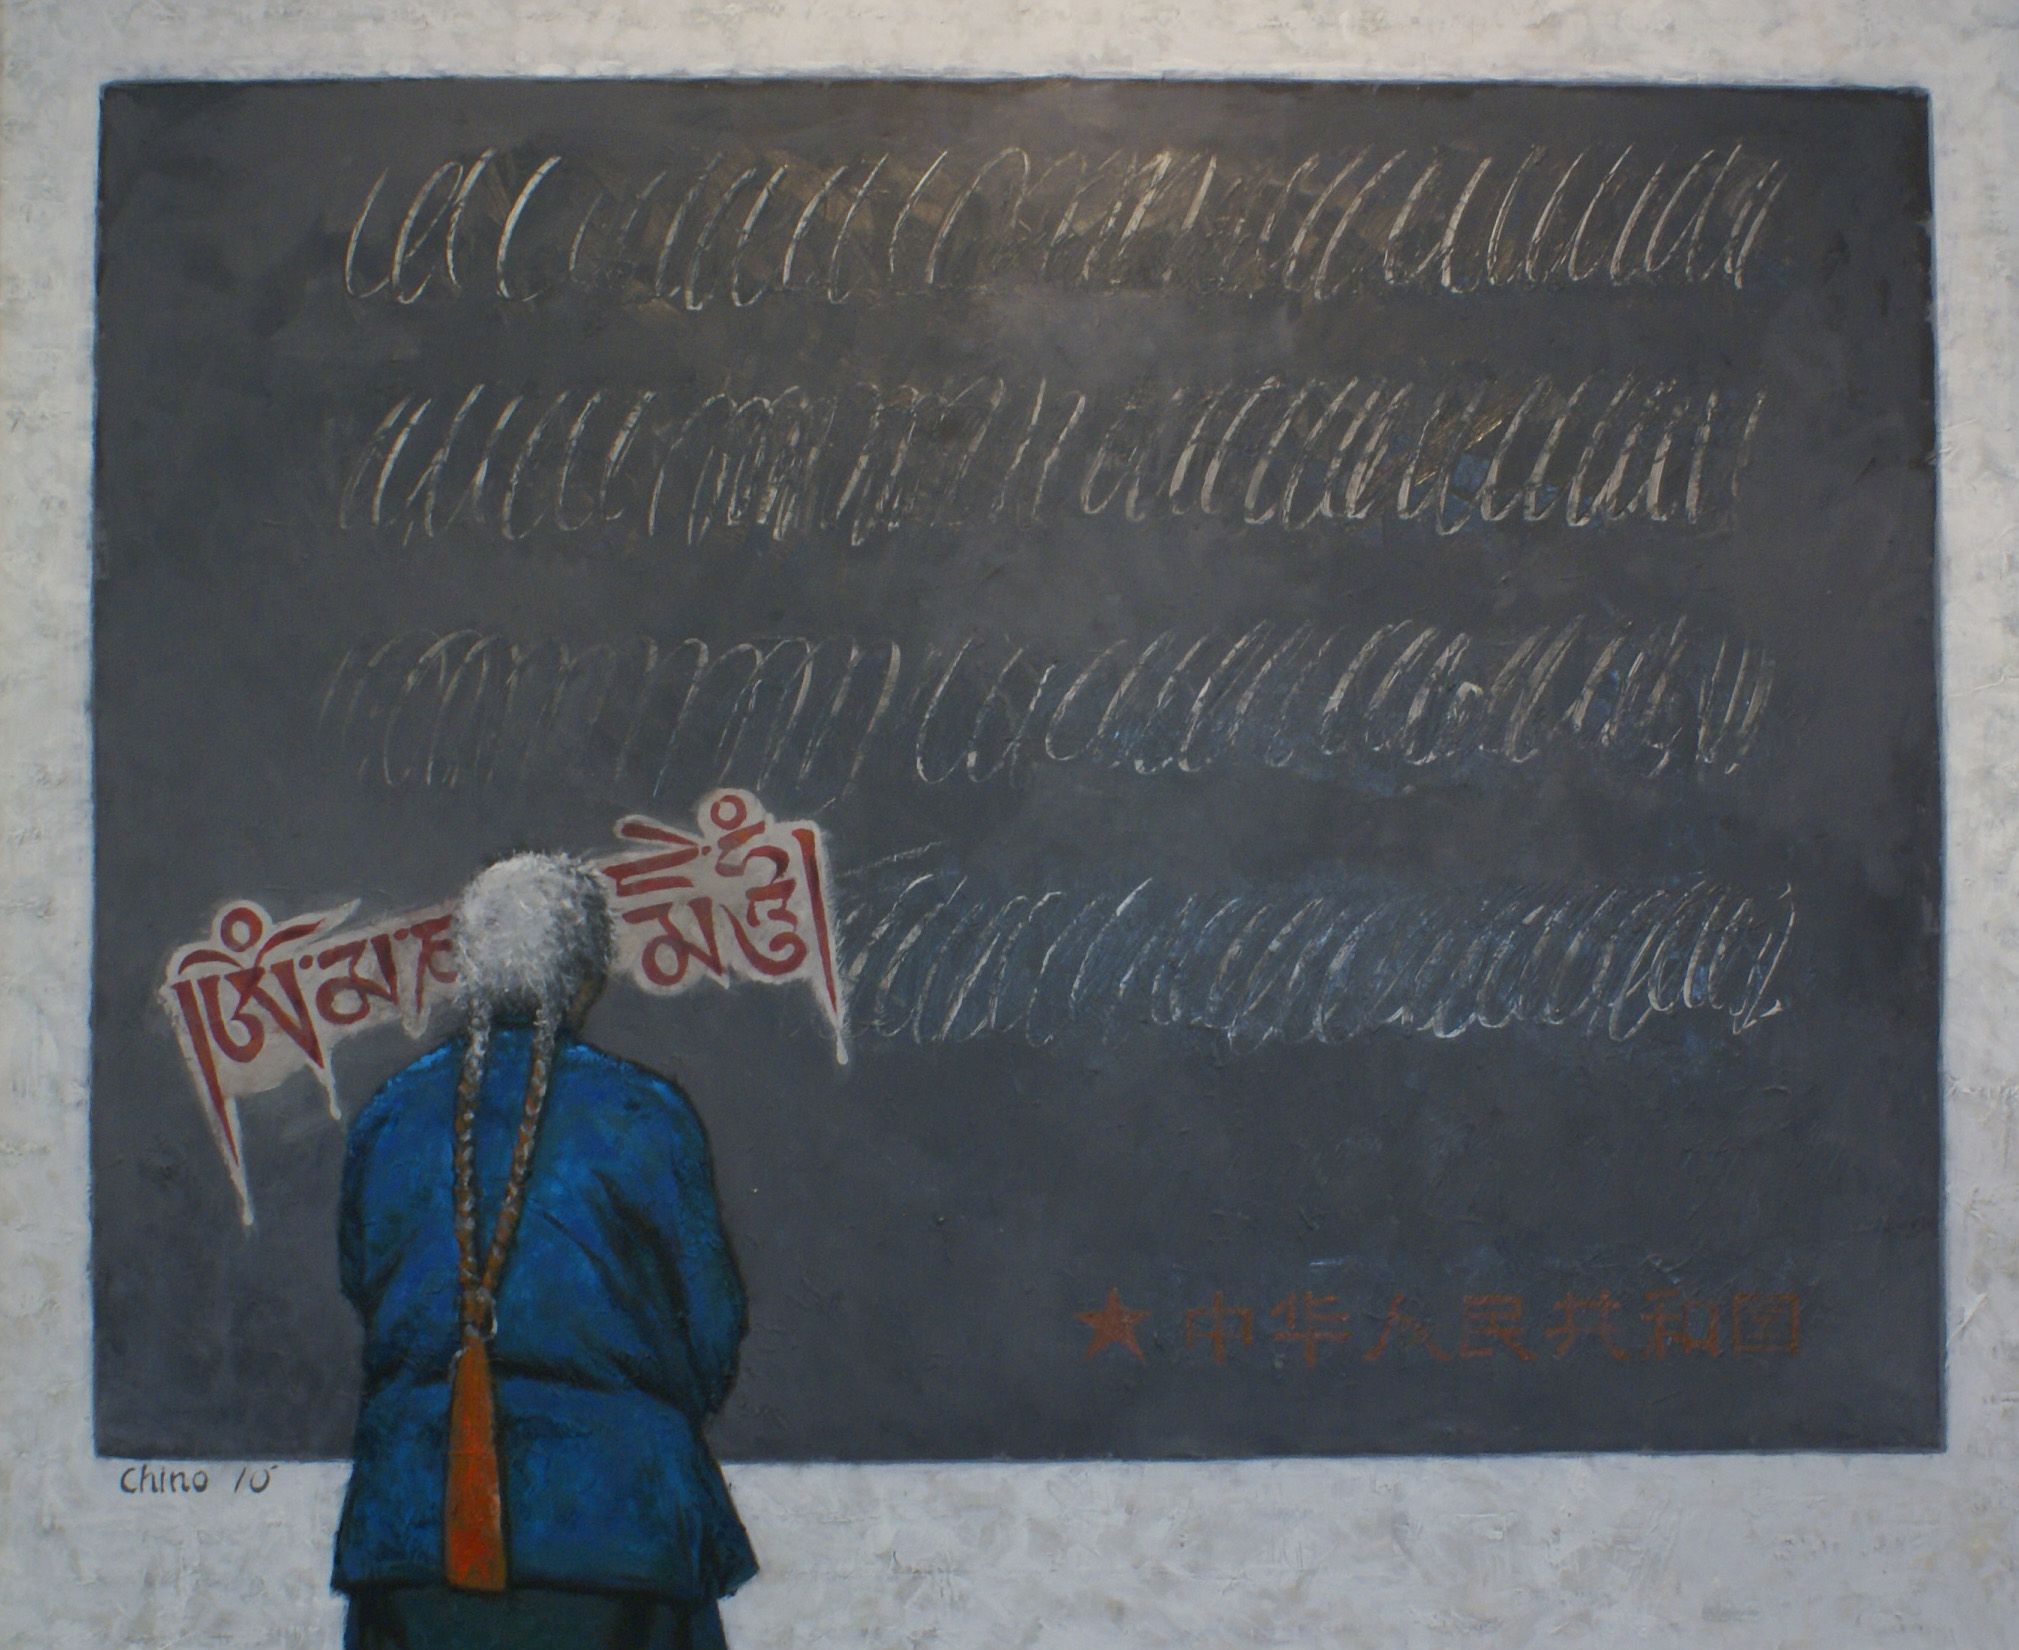 །ཨོཾ་མ་ དྨེ་ཧཱུྃ།
★中华人民共和国
Chino 10'